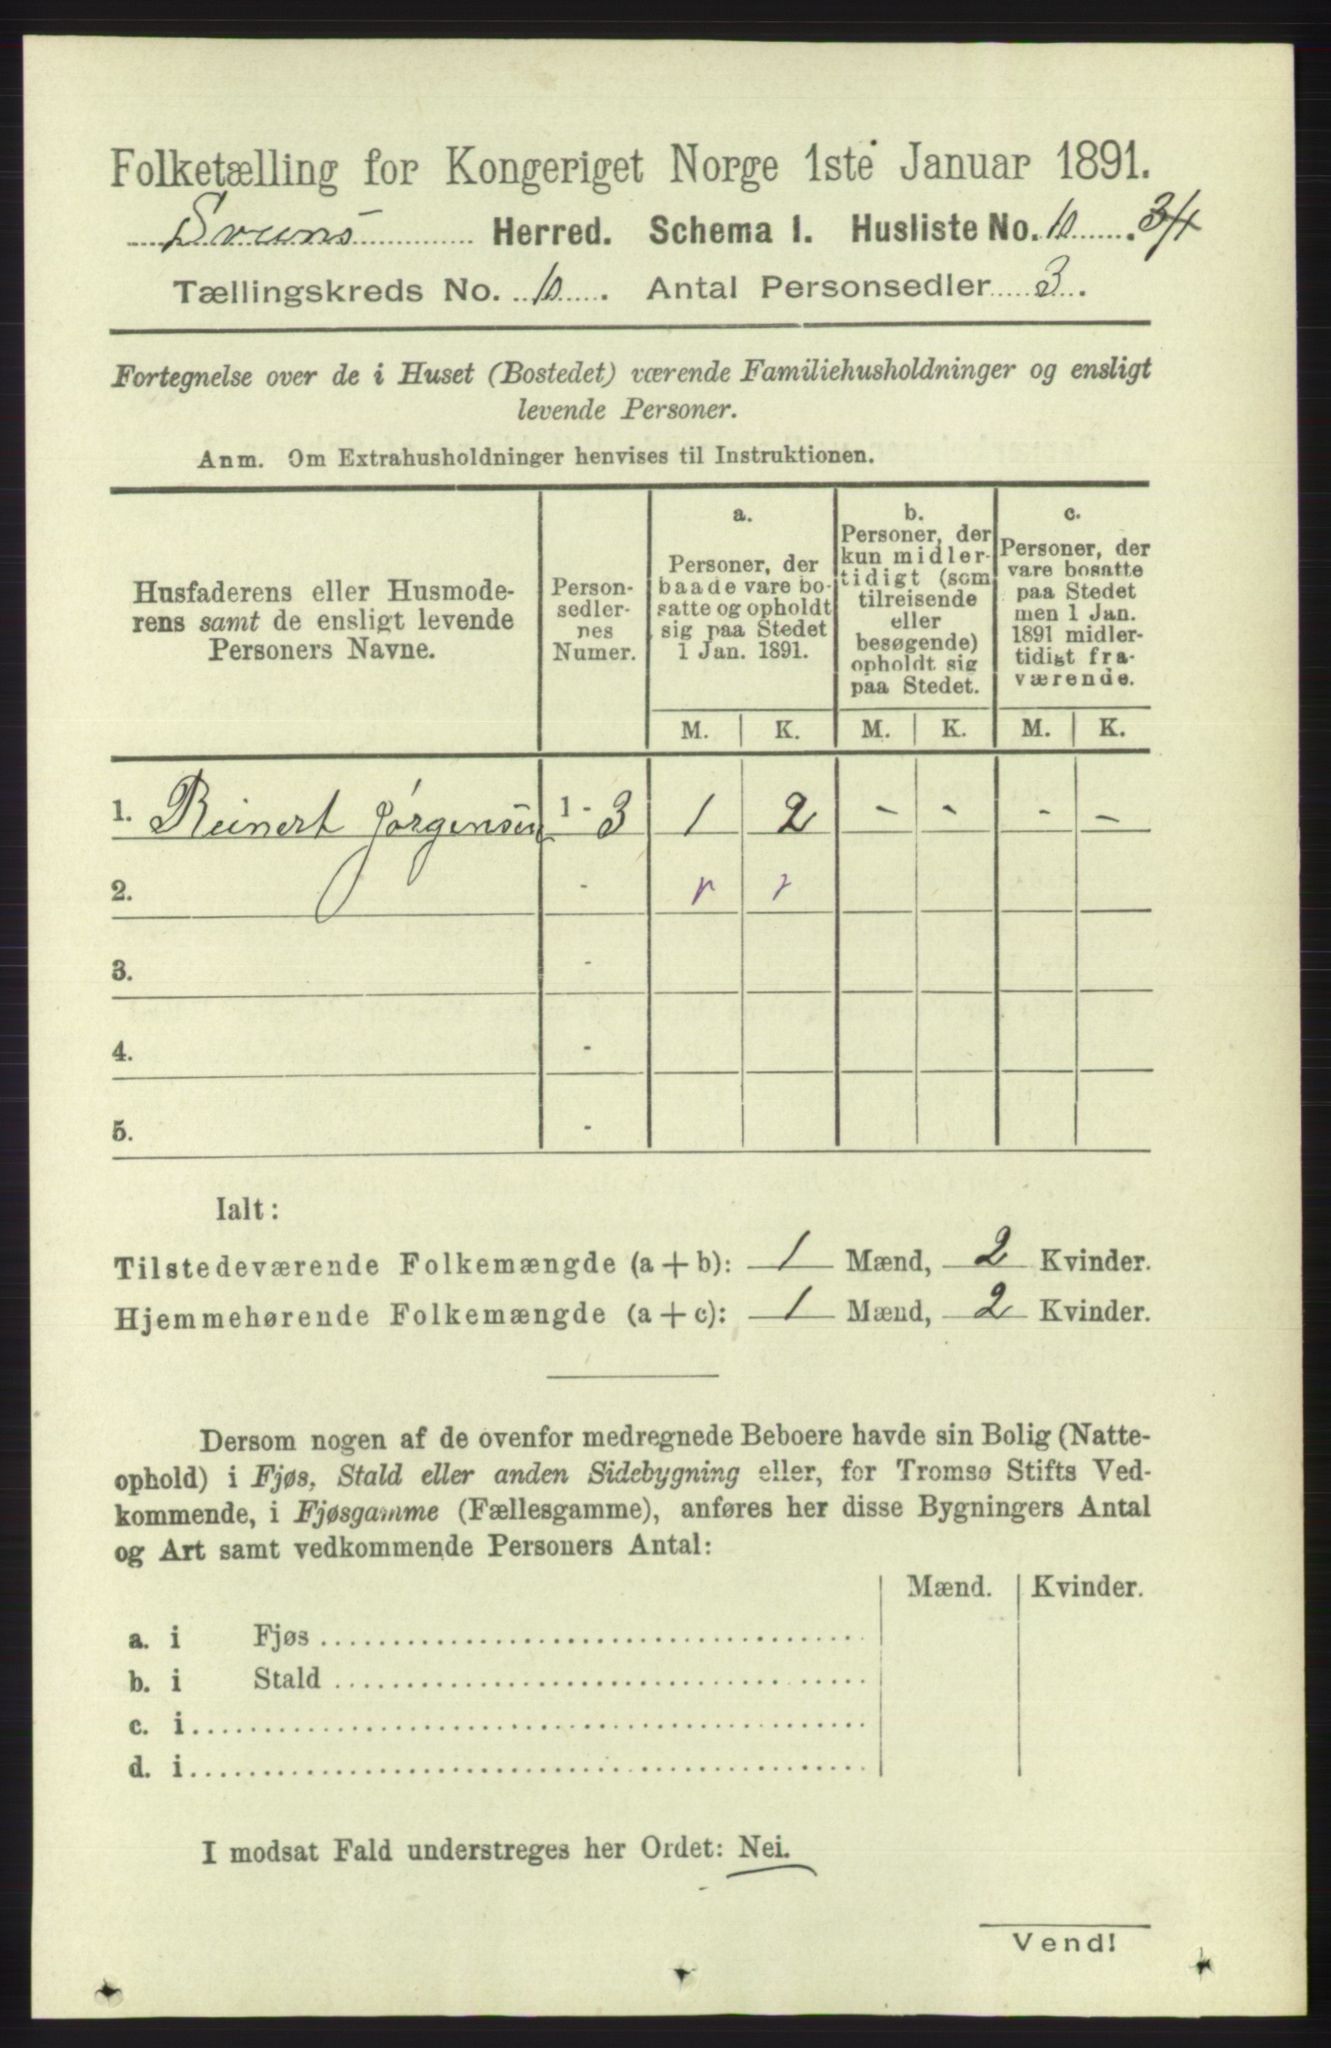 Folketælling for Kongeriget Norge 1ste Januar 1891.
Herred. Schema 1. Husliste No. 10. 34
Tællingskreds No. 10. Antal Personsedler 3.
Fortegnelse over de i Huset (Bostedet) værende Familiehusholdninger og ensligt
levende Personer.
Anm. Om Extrahusholdninger henvises til Instruktionen.
Husfaderens eller Husmode-
rens samt de ensligt levende
Personers Navne.
Person-
sedler-
nes
Numer.
a.
Personer, der
baade vare bo-
satte og opholdt
sig paa Stedet
1 Jan. 1891.
b.
Personer, der
kun midler-
tidigt (som
tilreisende
eller
besøgende)
opholdt sig
paa Stedet.
c.
Personer, der
vare bosatte
paa Stedet
men 1 Jan.
1891 midler-
tidigt fra-
værende.
M. K. M. K. M. K.
1. Reinert Jørgensen 1 - 3 1 2 - - - -
2. -
3. -
4. -
5. -
Ialt:
Tilstedeværende Folkemængde (a + b): 1 Mænd, 2 Kvinder.
Hjemmehørende Folkemængde (a + c): 1 Mænd, 2 Kvinder.
Dersom nogen af de ovenfor medregnede Beboere havde sin Bolig (Natte-
ophold) i Fjøs, Stald eller anden Sidebygning eller, for Tromsø Stifts Ved-
kommende, i Fjøsgamme (Fællesgamme), anføres her disse Bygningers Antal
og Art samt vedkommende Personers Antal:
Mænd. Kvinder.
a. i Fjøs
b. i Stald
c. i
d. i
I modsat Fald understreges her Ordet: Nei.
Vend!